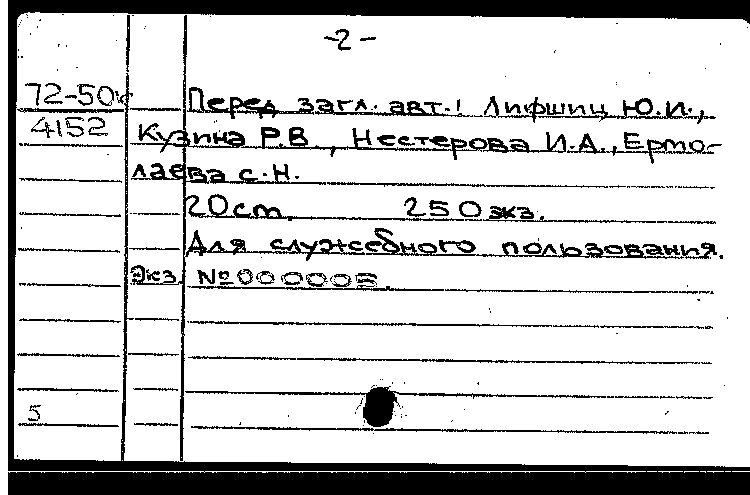 -2-
72-50
4152
Перед загл. авт.: Лифшиц Ю.И.,
Кузина Р.В., Нестерова И.А., Ермо-
лаева С.Н.
20 ст. 250 экз.
Для служебного пользования.
Экз. №000005.
5